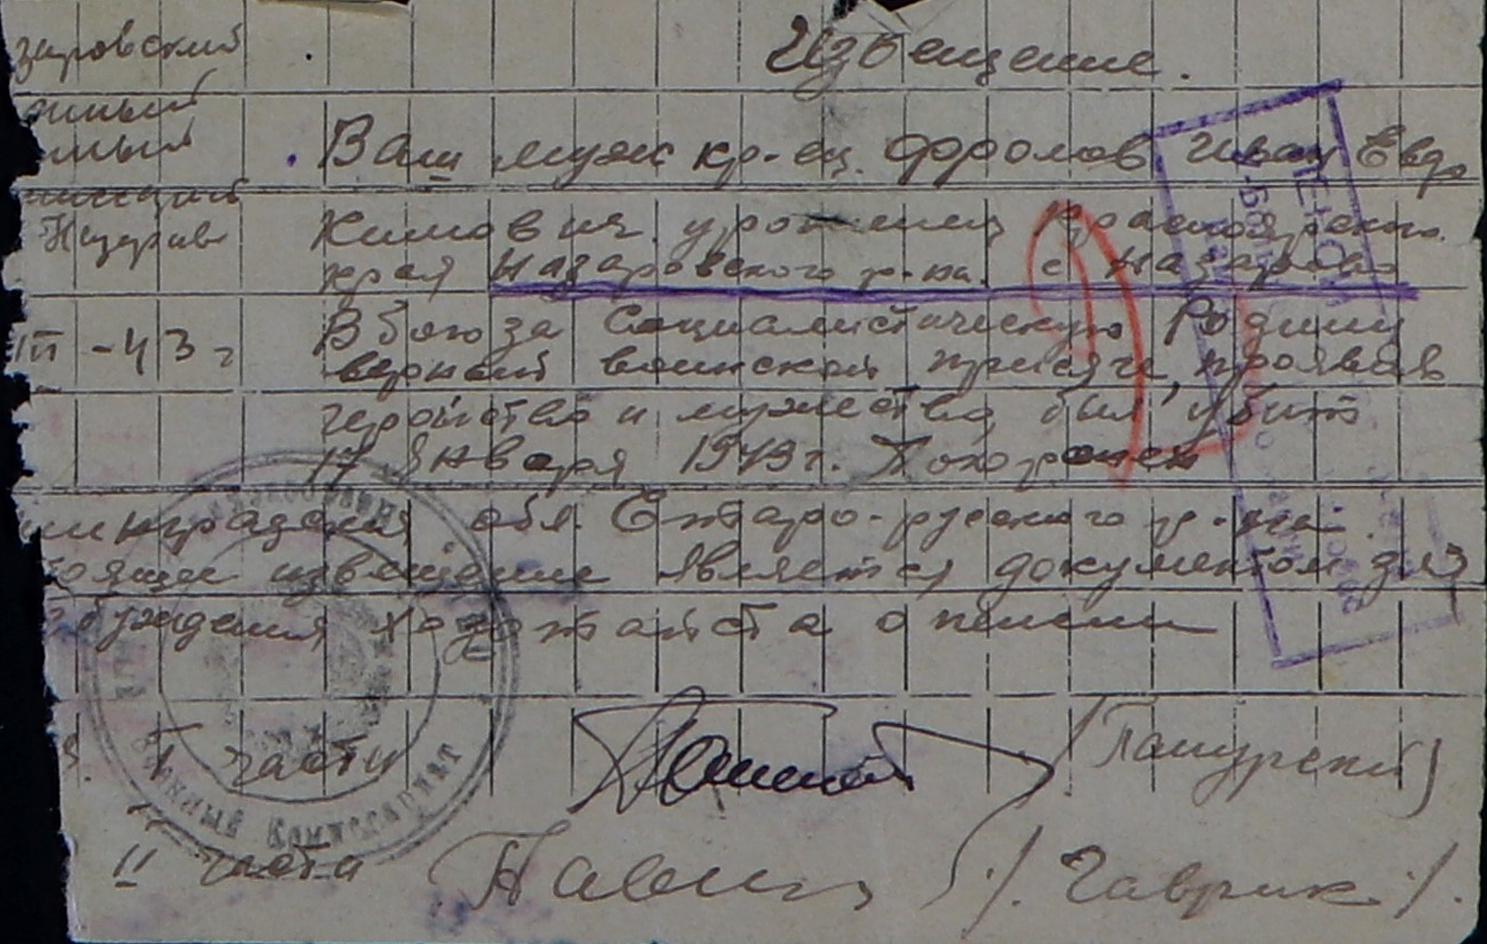 заровский
Извещение.
Ваш муж кр-ец. Фролов Иван Евдо
кимович урож Красноярского
края Назаровского р-на. с Назарово
III -43г
В бою за Социалистическую Родину
верный воинской присяге, проявив
геройство и мужество, был убит
17 Января 1943г. Похоронен
нинградская обл. Старо-русского р-на
тоящее извещение является документом для
збуждения ходотайства о пенсии
I части
/Пашурский/
II части
/. Гаврик ./.
Военный Комиссариат